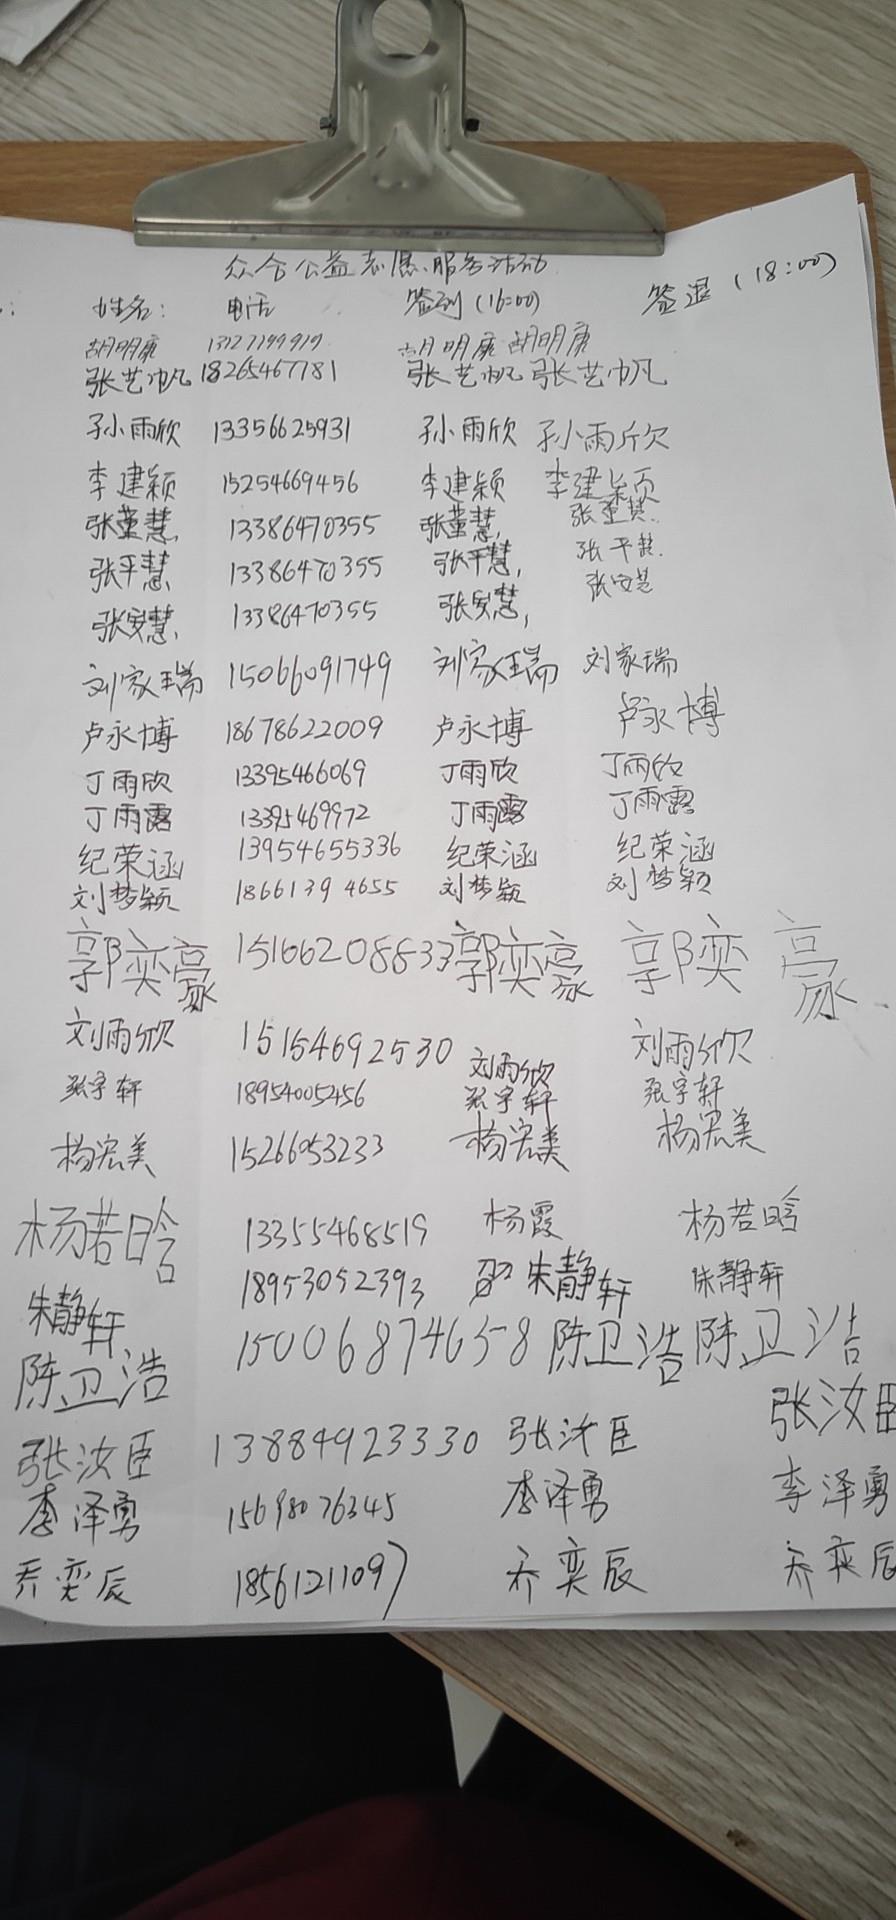 众合公益志愿服务活动
姓名: 电话 签到(16:00) 签退(18:00)
胡明康 13127199919 胡明康 胡明康
张艺帆 18265467781 张艺帆 张艺帆
孙小雨欣 13356625931 孙小雨欣 孙小雨欣
李建颖 15254669456 李建颖 李建颖
张董慧, 13386470355 张董慧, 张董慧.
张平慧 13386470355 张平慧, 张平慧.
张安慧, 13386470355 张安慧, 张安慧
刘家瑞 15066091749 刘家瑞 刘家瑞
卢永博 18678622009 卢永博 卢永博
丁雨欣 13395466069 丁雨欣 丁雨欣
丁雨露 13395469972 丁雨露 丁雨露
纪荣涵 13954655336 纪荣涵 纪荣涵
刘梦颖 18661394655 刘梦颖 刘梦颖
郭奕豪 15166208833 郭奕豪 郭奕豪
刘雨欣 15154692530 刘雨欣 刘雨欣
张宇轩 18954005456 张宇轩 张宇轩
杨宏美 15266053233 杨宏美 杨宏美
杨若晗 13355468519 杨霞 杨若晗
朱静轩 18953052393 朱静轩 朱静轩
陈卫浩 15006874658 陈卫浩 陈卫浩
张汝臣 13884923330 张汝臣 张汝臣
李泽勇 15698076345 李泽勇 李泽勇
乔奕辰 18561211097 乔奕辰 乔奕辰